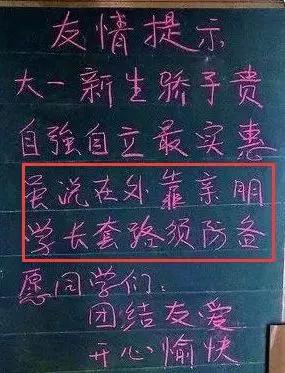 友情提示
大一新生骄子贵
自强自立最实惠
虽说在外靠亲朋
学长套路须防备
愿同学们：
团结友爱
开心愉快